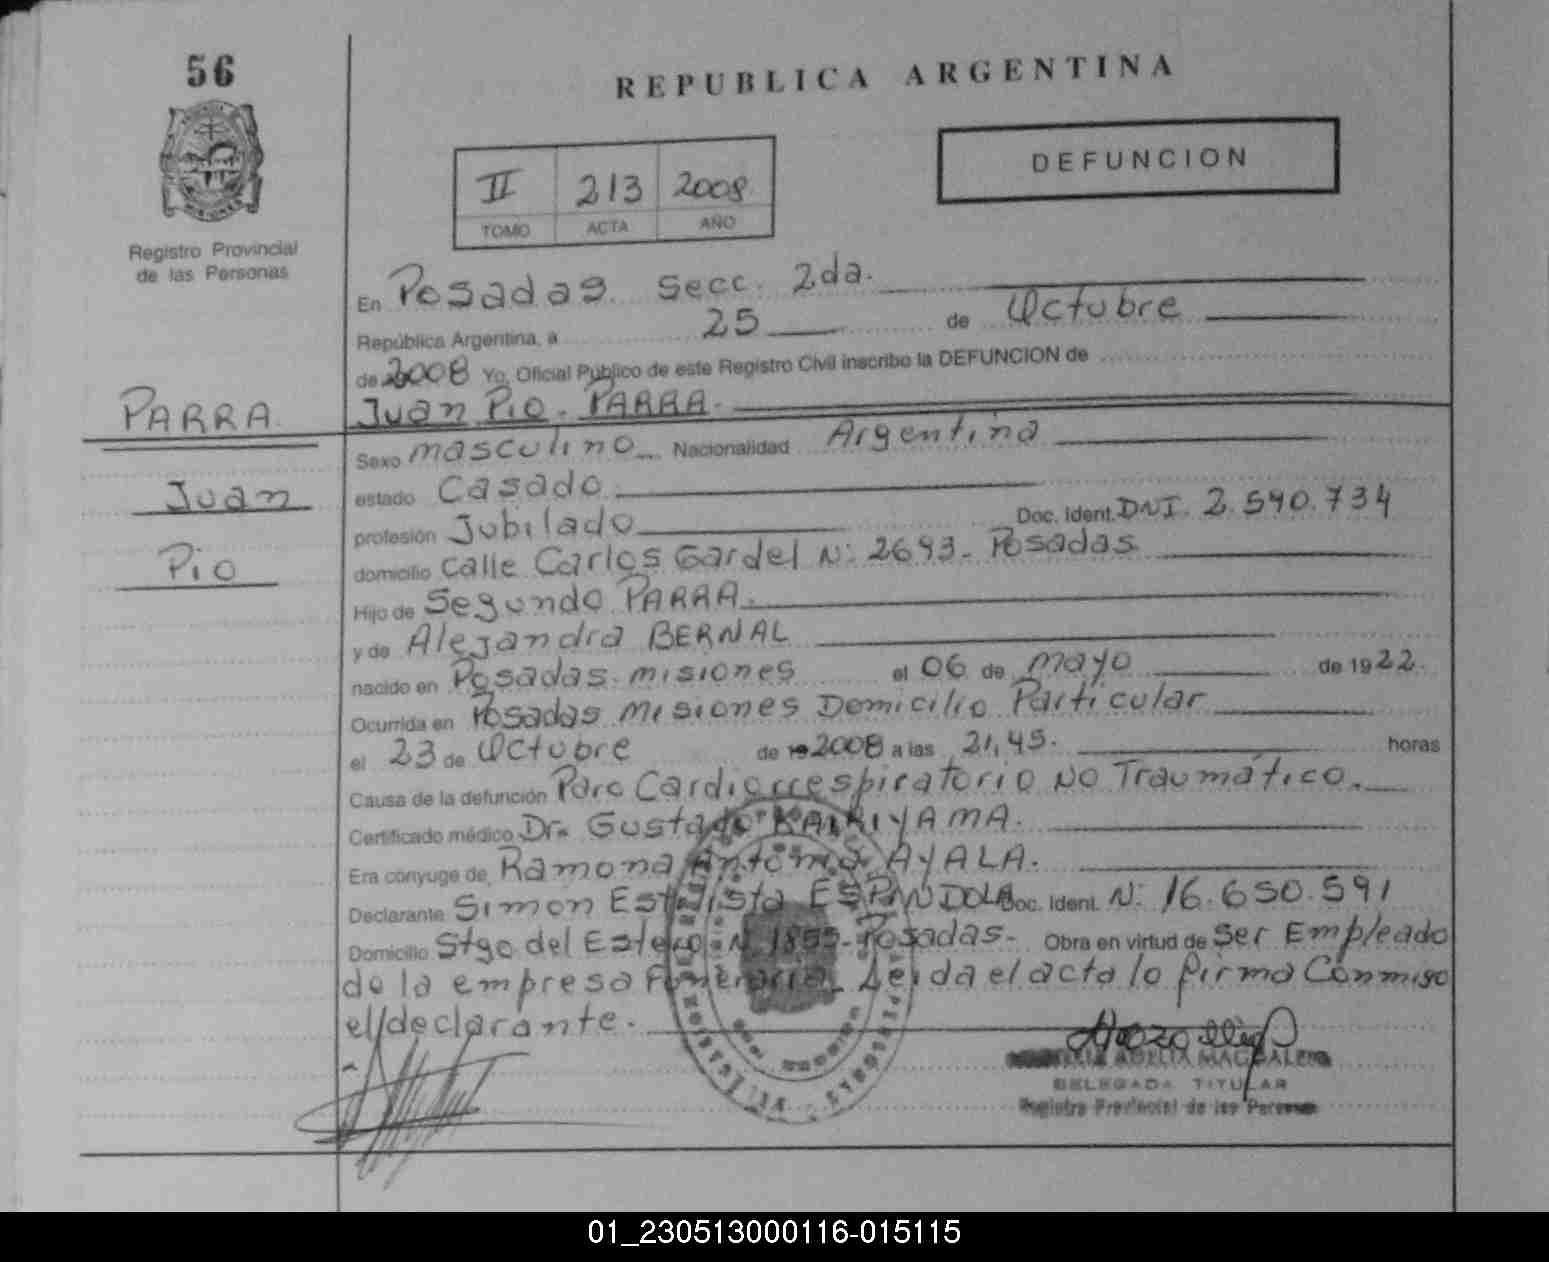 56
REPUBLICA ARGENTINA
DEFUNCION
II 213 2008
TOMO ACTA AÑO
Registro Provincial
de las Personas
En Posadas. Secc. 2da.
República Argentina, a 25 de Octubre
de 2008 Yo, Oficial Público de este Registro Civil inscribo la DEFUNCION de
PARRA
Juan
Pio
Juan Pio. PARRA.
Sexo masculino Nacionalidad Argentina
estado Casado
profesión Jubilado Doc. Ident. DNI. 2.590.734
domicilio calle Carlos Gardel N: 2693. Posadas
Hijo de Segundo PARRA.
y de Alejandra BERNAL
nacido en Posadas. misiones el 06 de mayo de 1922.
Ocurrida en Posadas misiones Domicilio Particular
el 23 de Octubre de 19 2008 a las 21,45. horas
Causa de la defunción Paro Cardiorrespiratorio No Traumático.
Certificado médico Dr. Gustavo
Era cónyuge de Ramona Antonia AYALA.
Declarante Simon ESPINDOLA Doc. Ident. N: 16.650.591
Domicilio Stgo. del Estero N 1855. Posadas. Obra en virtud de Ser Empleado
de la empresa Funeraria. Leida el acta lo firma Conmigo
el declarante.
ADELIA MAGDALENA
DELEGADA TITULAR
Registro Provincial de las Personas
01_230513000116-015115